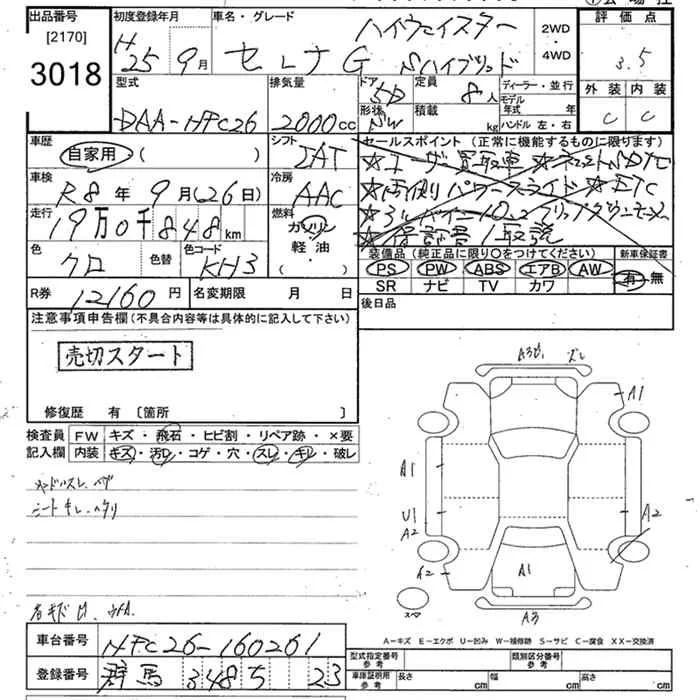 出品番号
[2170]
3018
初度登録年月
H25 9月
車名・グレード
ハイウェイスター
セレナ G Sハイブリッド
2WD
・
4WD
評価点
3.5
外装 内装
C C
型式
DAA-HFC26
排気量
2000cc
ドア
5D
形状
SW
定員
8人
積載
kg
ディーラー・並行
モデル
年式 年
ハンドル 左・右
車歴
自家用 ( )
シフト
IAT
車検
R8年9月(26日)
冷房
AAC
走行
19万0千848km
燃料
ガソリン
軽・油
( ・ )
色
クロ
色替
色コード
KH3
セールスポイント (正常に機能するものに限ります)
★ユーザー買取車
★両側パワースライド ★ETC
★保証書/取説
装備品(純正品に限り〇をつけてください)
PS PW ABS エアB AW
SR ナビ TV カワ
新車保証書
有・無
R券 12160円
名変期限 月 日
後日品
注意事項申告欄(不具合内容等は具体的に記入して下さい)
売切スタート
修復歴 有 〔箇所 〕
検査員
記入欄
FW キズ・飛石・ヒビ割・リペア跡・×要
内装 キズ・汚レ・コゲ・穴・スレ・キレ・破レ
A1
A1
U1
A2
A2
A2
A1
A3
スペ
A-キズ E-エクボ U-凹み W-補修跡 S-サビ C-腐食 XX-交換済
車台番号 HFC26-160261
登録番号 群馬 348 ち 23
型式指定番号
参考
類別区分番号
参考
車庫証明用
参考
長さ cm
幅 cm
高さ cm